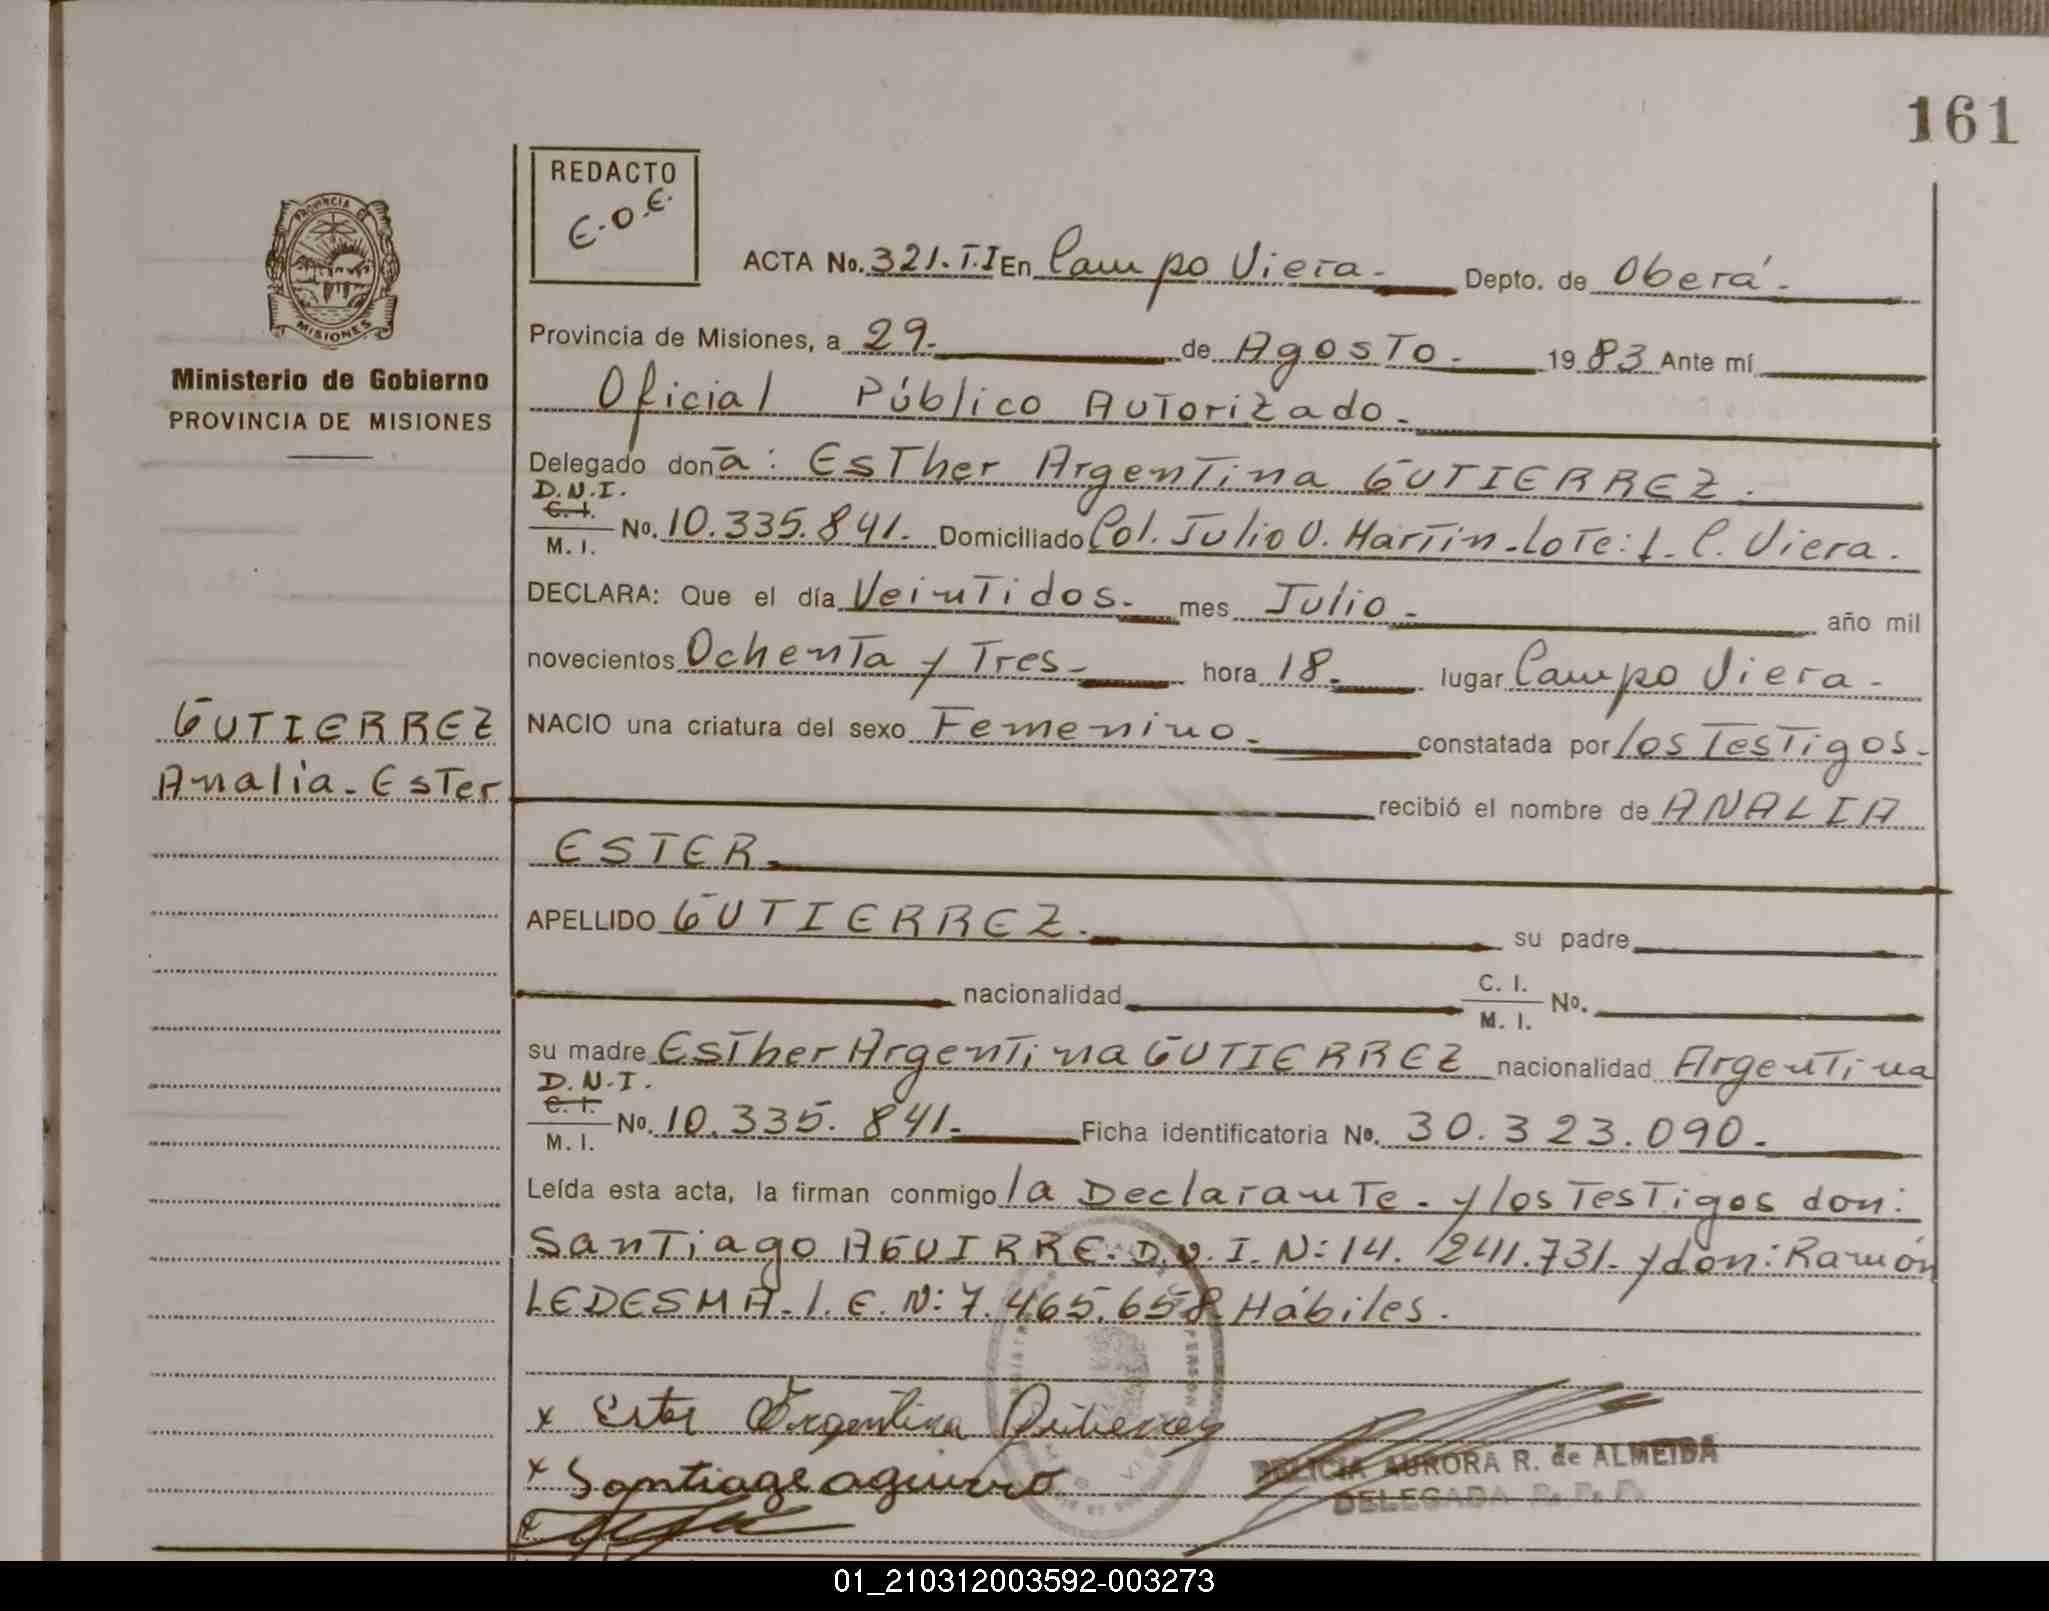 161
REDACTO
E.O.E.
PROVINCIA DE
MISIONES
Ministerio de Gobierno
PROVINCIA DE MISIONES
ACTA No. 321.T.I En Campo Viera.- Depto. de Oberá.-
Provincia de Misiones, a 29.- de Agosto.- 1983 Ante mí
Oficial Público Autorizado.-
Delegado donã: Esther Argentina GUTIERREZ.
D.N.I.
C. I.
M. I. No. 10.335.841.- Domiciliado Col. Julio U. Martín-Lote: 1. C. Viera.
DECLARA: Que el día Veintidos.- mes Julio.- año mil
novecientos Ochenta y Tres.- hora 18.- lugar Campo Viera.-
GUTIERREZ
Analía-Ester
NACIO una criatura del sexo Femenino.- constatada por los Testigos.-
recibió el nombre de ANALIA
ESTER.-
APELLIDO GUTIERREZ.- su padre
nacionalidad C. I.
M. I. No.
su madre Esther Argentina GUTIERREZ nacionalidad Argentina
D.N.I.
C. I.
M. I. No. 10.335.841.- Ficha identificatoria No. 30.323.090.-
Leída esta acta, la firman conmigo la Declarante.- y los Testigos don:
Santiago AGUIRRE. D.N.I. N: 14.241.731.- y don: Ramón
LEDESMA.-L.E. N: 7.465.658 Hábiles.
x Ester Argentina Gutierrez
x Santiago aguirre
DELICIA AURORA R. de ALMEIDA
DELEGADA R. P. P.
01_210312003592-003273